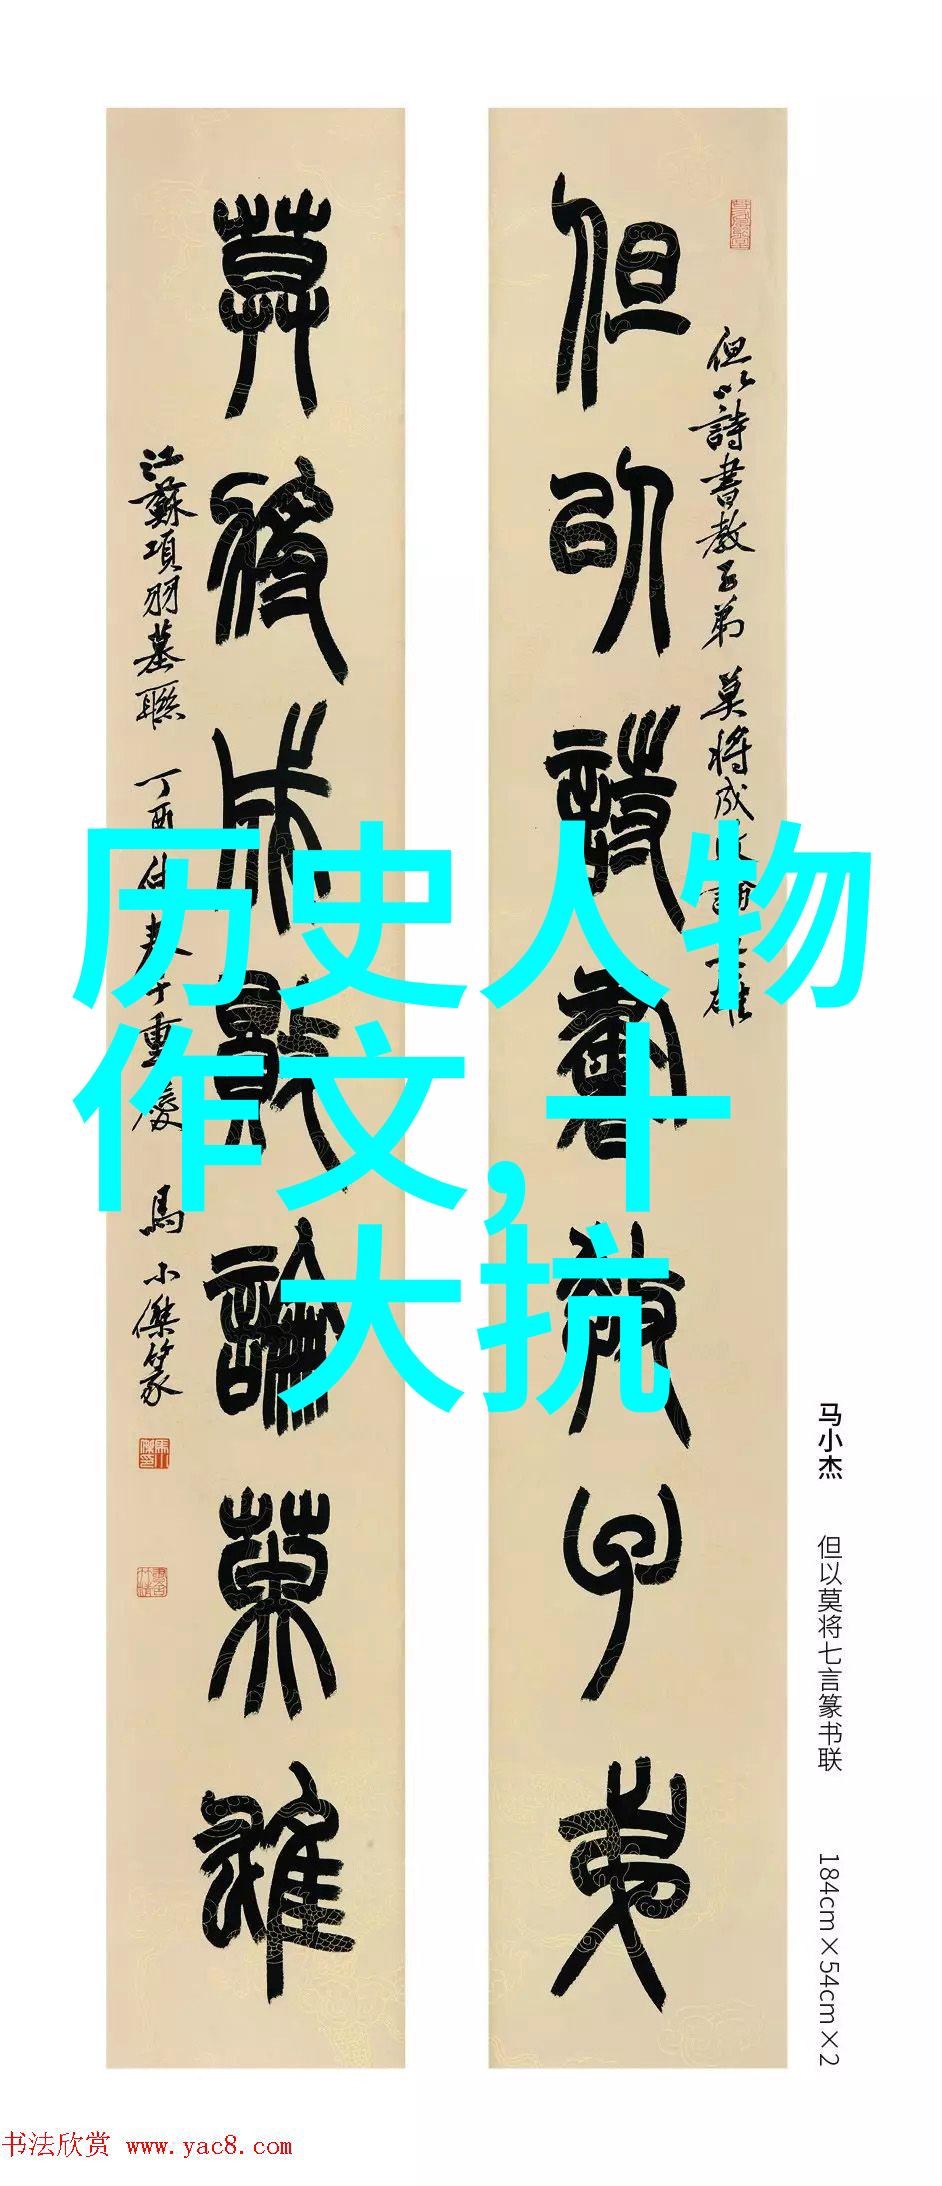 历史人物
作文,十
大抗
但以詩書教子弟
莫將成敗論英雄
但以詩書教子弟 莫將成 論 雄
江蘇項羽墓聯 丁酉仲春于重慶 馬小傑篆
马小杰 但以莫将七言篆书联 184cm×54cm×2
书法欣赏 www.yac8.com